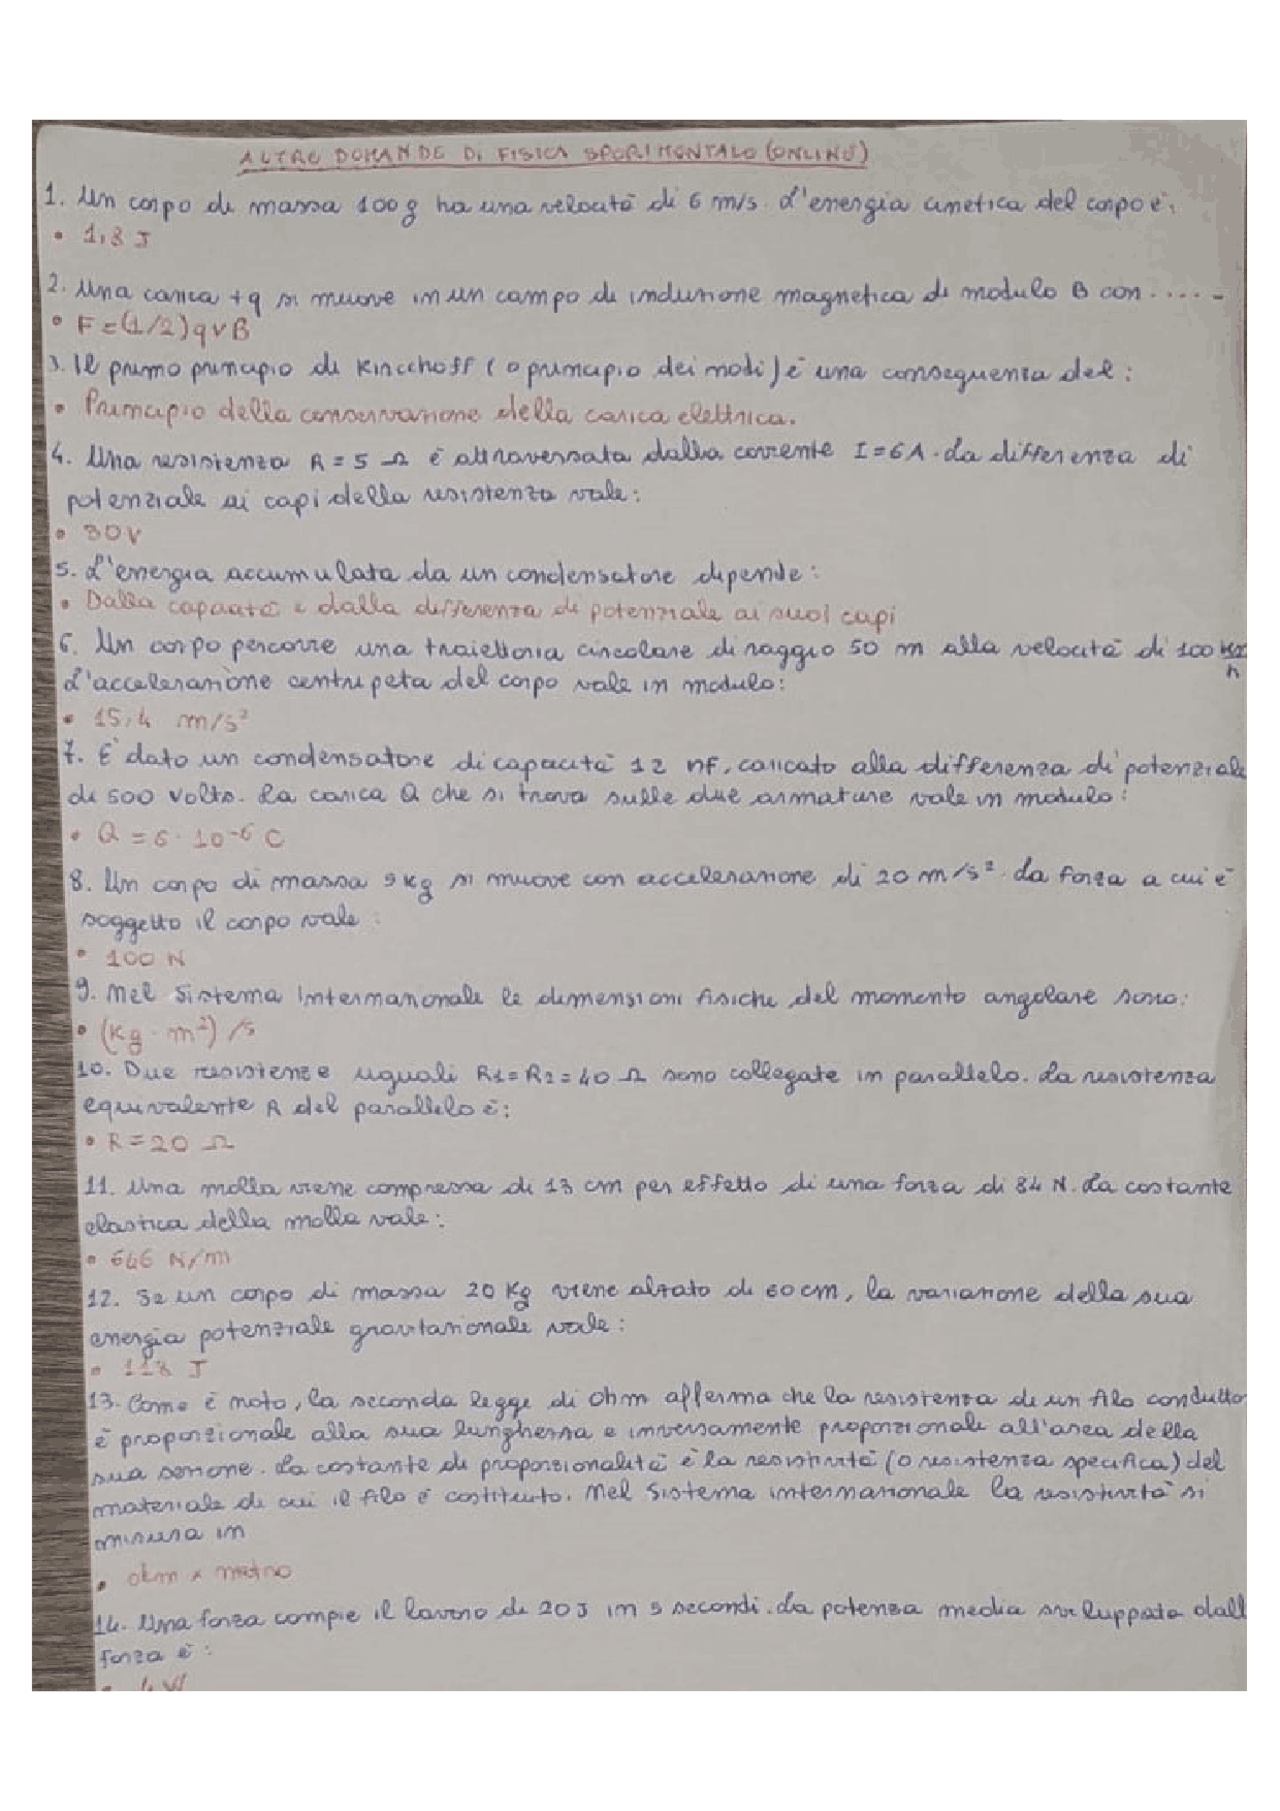 ALTRE DOMANDE DI FISICA SPERIMENTALE (ONLINE)
1. Un corpo di massa 100g ha una velocità di 6 m/s. L'energia cinetica del corpo è:
• 1,8 J
2. Una carica +q si muove in un campo di induzione magnetica di modulo B con .....
• F=(1/2)qvB
3. Il primo principio di Kincchoff (o principio dei nodi) è una conseguenza del:
• Principio della conservazione della carica elettrica.
4. Una resistenza R = 5 Ω è attraversata dalla corrente I=6A. La differenza di
potenziale ai capi della resistenza vale:
• 30V
5. L'energia accumulata da un condensatore dipende:
• Dalla capacità e dalla differenza di potenziale ai suoi capi
6. Un corpo percorre una traiettoria circolare di raggio 50 m alla velocità di 100 Km/h
L'accelerazione centripeta del corpo vale in modulo:
• 15,4 m/s²
7. È dato un condensatore di capacità 12 nF, caricato alla differenza di potenziale
di 500 Volts. La carica Q che si trova sulle due armature vale in modulo:
• Q = 6 · 10⁻⁶ C
8. Un corpo di massa 5kg si muove con accelerazione di 20 m/s². La forza a cui è
soggetto il corpo vale:
• 100 N
9. Nel Sistema Internazionale le dimensioni fisiche del momento angolare sono:
• (Kg · m²) /s
10. Due resistenze uguali R1=R2=40 Ω sono collegate in parallelo. La resistenza
equivalente R del parallelo è:
• R=20 Ω
11. Una molla viene compressa di 13 cm per effetto di una forza di 84 N. La costante
elastica della molla vale:
• 646 N/m
12. Se un corpo di massa 20 Kg viene alzato di 60cm, la variazione della sua
energia potenziale gravitazionale vale:
• 118 J
13. Come è noto, la seconda legge di Ohm afferma che la resistenza di un filo condutto
è proporzionale alla sua lunghezza e inversamente proporzionale all'area della
sua sezione. La costante di proporzionalità è la resistività (o resistenza specifica) del
materiale di cui il filo è costituito. Nel Sistema internazionale la resistività si
misura in
• ohm x metro
14. Una forza compie il lavoro di 20J in 5 secondi. La potenza media sviluppata dall
forza è:
• 4 W